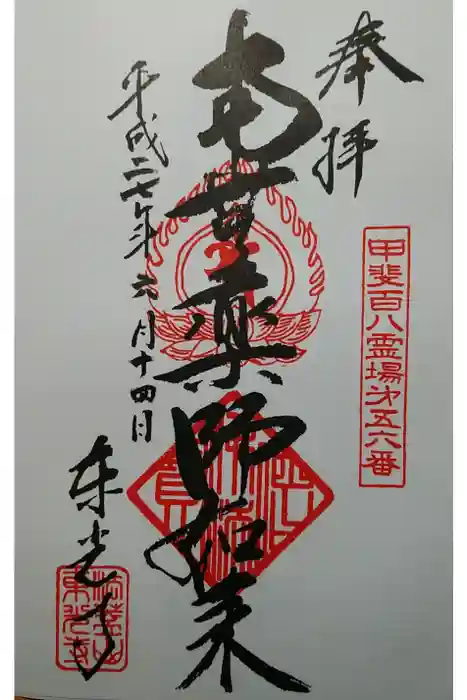 奉拝
甲斐百八霊場第五六番
南無薬師如来
平成二七年六月十四日
東光寺
法蓋山
東光寺